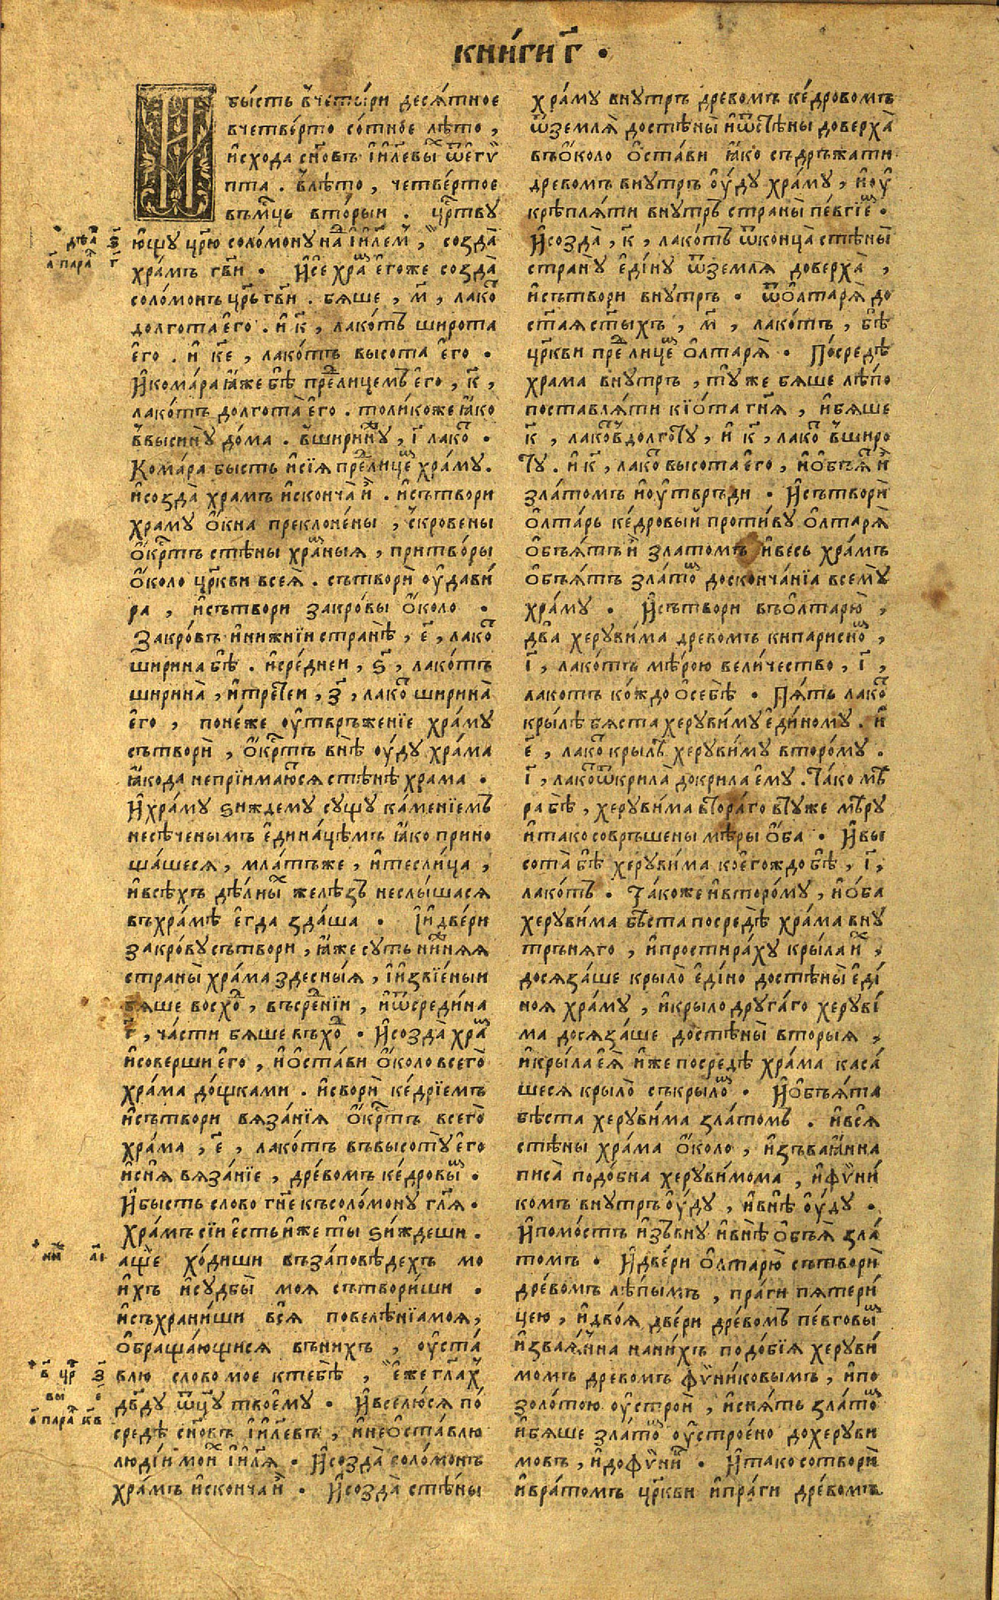 КНИ́ГИ г҃ ·
И бы́сть в҆четы́ри десѧ́тное
вчетве́рто со́тное лѣ́то ,
и҆схода сн҃овъ і҆и҃левы ѿе҆гѵ
пта . в҆лѣ́то , четве́ртое
въмц҃ь вто́рыи . цр҃тву
ю҆щу цр҃ю соло́мону на і҆и҃лем , созда̀
хра́мъ гв҃и · И҆се хра е҆го́же созда̀
соло́монъ цр҃ь гв҃и . бѧ́ше , м҃ , лако
долгота̀ е҆го̀ . и҆ к҃ , лако́тъ широта
е҆го . и҆ к҃е , лако́тъ высота е҆го ·
И҆кома́ра ꙗ҆́же бѣ̀ пре лице́мъ е҆го , к҃ ,
лако́тъ долгота̀ е҆го . толи́коже ꙗ҆́ко
в҆высинꙋ̀ до́ма . в҆ширинꙋ , і҃ лако ·
Кома́ра бысть и҆сїѧ̀ пре лице хра́му .
и҆созда̀ храмъ и҆сконча̀ и҆̀ . и҆сътвори
храму о҆́кна преклоне́ны , скровены
о҆́крⷭтъ стѣны хра́мныѧ , притво́ры
о҆́коло цр҃кви всеѧ̀ . сътворѝ ѹ҆дави́
ра , и҆сътвори закро́вы о҆́коло ·
Закро́въ и҆нижнїи странѣ̀ , е҃ , лако
ширина бѣ̀ . и҆сре́днеи , ѕ҃ , лако́тъ
ширина̀ , и҆тре́тїеи , з҃ , лако ширина̀
е҆го̀ , поне́же ѹ҆твръже́нїе хра́му
сътворѝ , о҆́крⷭтъ внѣ̀ ѹ҆ду храма
ꙗ҆́кода непрїима́ютсѧ стѣнѣ̀ храма ·
И҆хра́му ѕи́ждему сущу ка́менїемъ
несѣ́ченымъ е҆дина́цѣмъ ꙗ҆́ко прино
ша́шесѧ , мла́тъже , и҆тесли́ца ,
и҆всѣ́хъ дѣлны желѣ́зъ неслы́шасѧ
въхра́мѣ е҆гда зда́ша · И҆две́ри
закро́ву сътвори , ꙗ҆́же суть ни́жнѧѧ
страны̀ храма здесны́ѧ , и҆и҆звїе́ныи
бѧ́ше восхо , въсре́нїи , и҆ѿсредина
г҃ , ча́сти бѧ́ше въхо · И҆созда̀ хра
и҆соверши е҆го , и҆о҆ста́ви о҆́коло всего̀
храма до́щками . и҆свори ке́дрїемъ
и҆сътвори вѧза́нїѧ о҆́крⷭтъ всего̀
храма , е҃ , лако́тъ въвысотꙋ̀ е҆го
и҆снѧ̀ вѧза́нїе , дре́вомъ ке́дровы ·
И҆бысть слово гн҃е къ соло́мону гл҃ѧ ·
Хра́мъ сїи е҆сть и҆́же ты̀ ѕи́ждеши .
а҆ще хо́диши въза́повѣдехъ мо
и҆́хъ и҆судбы̀ моѧ сътвори́ши .
и҆съхрани́ши всѧ̀ повелѣ́нїамоѧ ,
о҆браща́ющисѧ въни́хъ , ѹ҆ста́
влю слово мое ктебѣ̀ , е҆́же гл҃ах
дв҃ду ѿц҃у твоему̀ · И҆вселю́сѧ по
средѣ̀ сн҃овъ і҆и҃левъ , и҆нео҆ста́влю
люді́и мои і҆и҃лѧ · И҆созда̀ соло́монъ
хра́мъ и҆сконча̀ и҆̀ · И҆созда̀ стѣны
дѣа ѕ҃
а҃ пара г҃
ни҃ а҃і
в҃ цр҃ з҃
вы е҃
а҃ пара к҃в
хра́му вну́тръ дре́вомъ ке́дровомъ
ѿземлѧ̀ достѣны̀ и҆ѿстѣны доверха̀
въо҆́коло о҆ста́ви ꙗ҆́ко съдръжа́ти
древомъ вну́тръ ѹ҆́ду хра́му , и҆ѹ҆
крѣплѧ́ти внутръ страны̀ пе́вгїе ·
И҆созда̀ , к҃ , лако́тъ ѿконца̀ стѣны̀
странꙋ̀ е҆ди́ну ѿземлѧ доверха̀ ,
и҆сътвори внутръ · ѿо҆лтарѧ̀ до
ст҃аѧ ст҃ыхъ , м҃ , лако́тъ , бѣ̀
цр҃кви пре лице о҆лтарѧ̀ · По́средѣ̀
храма внутръ , тꙋ́ же бѧ́ше лѣ́по
поставлѧ́ти кїо́та гн҃ѧ , и҆бѧ́ше
к҃ , лако́в долготꙋ , и҆ к҃ , лако в҆широ
тꙋ . и҆ к҃ , лако высота е҆го̀ , и҆о҆бъѧ̀ и҆̀
зла́томъ и҆ѹ҆твръди · И҆сътворѝ
о҆лта́рь ке́дровый проти́ву о҆лтарѧ̀
о҆бъѧ́тъ и҆̀ зла́томъ и҆весь храмъ
о҆бъѧ́тъ зла́то доскончанїѧ всемꙋ̀
храму . И҆сътвори въо҆лтарю̀ ,
два̀ херуви́ма древомъ кипарисно ,
і҃ , лако́тъ мѣ́рою вели́чество , і҃ ,
лакотъ ко́ждо о҆себѣ̀ · Пѧ́ть лако
крылѣ̀ бѧ́ста херуви́му е҆ди́ному . и҆
е҃ , лако крылѣ̀ херуви́му второ́му .
і҃ , лако ѿкрила̀ докрила е҆му . Та́ко мѣ́
ра бѣ̀ , херуви́ма втора́го втуже мѣ́ру
и҆та́ко совръшены мѣ́ры о҆́ба · И҆вы
сота̀ бѣ̀ херуви́ма кое́гождо бѣ̀ , і҃ ,
лако́тъ . Та́коже и҆второ́му , и҆о҆́ба
херуви́ма бѣ́ста посредѣ̀ хра́ма вну́
тръ̀нѧго , и҆простира́ху кры́ла и ,
досѧза́ше крыло̀ е҆ди́но достѣны̀ е҆ди́
ноѧ хра́му , и҆крыло друга́го херуви́
ма досѧза́ше достѣны̀ вторы́ѧ ,
и҆кры́ла еѧ̀ и҆́же посредѣ̀ храма каса́
шесѧ крыло̀ съкрыло · И҆о҆бъѧ́та
бѣ́ста херуви́ма зла́томъ . и҆всѧ̀
стѣны храма о҆́коло , и҆зъваѧ҆нна
писа̀ подо́бна херуви́мома , и҆фѵ́ни́
комъ внутръ ѹ҆́ду , и҆внѣ̀ ѹ҆́ду ·
И҆помо́стъ и҆звну и҆внѣ̀ о҆бъѧ̀ зла́
томъ · И҆две́ри о҆лтарю̀ сътворѝ
дре́вомъ лѣ́пымъ , пра́ги пѧтери́
цею , и҆дво́ѧ две́ри дре́вомъ пе́вговы
и҆зваѧ҆нна на ни́хъ подо́бїѧ херуви́
момъ дре́вомъ фѵ́никовымъ , и҆по
зо́лотою ѹ҆строѝ , и҆снѧ́ть зла́то
и҆бѧ́ше зла́то ѹ҆строе́но дохеруви
мовъ , и҆дофѵ́ни · И҆та́ко сотворѝ
и҆вратомъ цр҃кви и҆пра́ги дре́вомъ